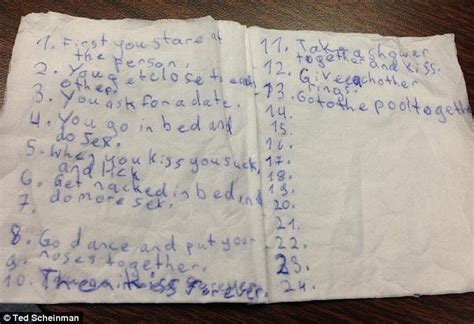 1. First you stare at
the person.
2. You get close to each
other.
3. You ask for a date.
4. You go in bed and
do sex.
5. When you kiss you suck
and lick
6. Get nacked in bed, and
7. do more sex.
8. Go dance and put your
9. noses together.
10. Then kiss forever.
11. Take a shower
together and kiss.
12. Give eachother
rings.
13. Go to the pool together
14.
15.
16.
17.
18.
19.
20.
21.
22.
23.
24.
© Ted Scheinman